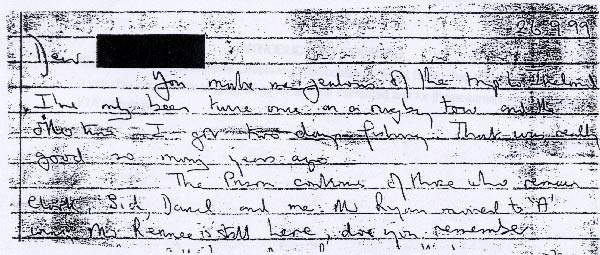 26.9.99
Dear
You make me jealous of the trip to Ireland
I've only been twice once on a rugby tour and the
other time I got two days fishing. That was really
good so many years ago.
The Prison continues of those who remain
Sid, Daniel and me. Mr moved to 'A'
Mr Rennee is still here, do you remember